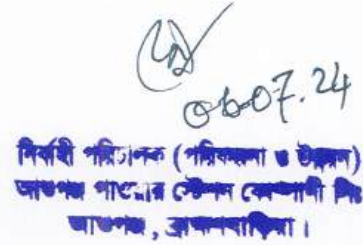 ০৮.07.24
নির্বাহী পরিচালক (পরিকল্পনা ও উন্নয়ন)
আশুগঞ্জ পাওয়ার স্টেশন কোম্পানী লিঃ
আশুগঞ্জ, ব্রাহ্মণবাড়িয়া।